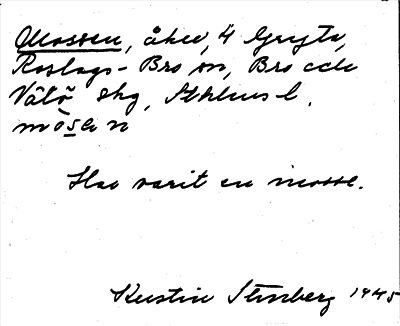 Mossen, åker, 4 Gryta,
Roslags-Bro sn, Bro och
Vätö skg, Sthlms l.
mòsa n
Har varit en mosse.
Kerstin Stenberg 1945